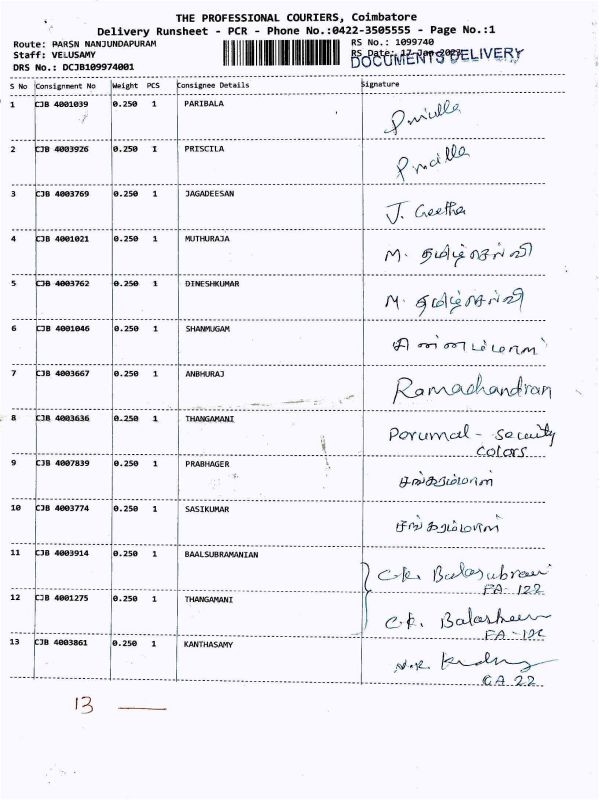 THE PROFESSIONAL COURIERS, Coimbatore
Delivery Runsheet - PCR - Phone No.:0422-3505555 - Page No.:1
Route: PARSN NANJUNDAPURAM RS No.: 1099740
Staff: VELUSAMY RS Date: 17-Jan-2023
DOCUMENTS DELIVERY
DRS No.: DCJB109974001
S No Consignment No Weight PCS Consignee Details Signature
1 CJB 4001039 0.250 1 PARIBALA
2 CJB 4003926 0.250 1 PRISCILA
3 CJB 4003769 0.250 1 JAGADEESAN J. Geetha
4 CJB 4001021 0.250 1 MUTHURAJA M. தமிழ்செல்வி
5 CJB 4003762 0.250 1 DINESHKUMAR M. தமிழ்செல்வி
6 CJB 4001046 0.250 1 SHANMUGAM
7 CJB 4003667 0.250 1 ANBHURAJ Ramachandran
8 CJB 4003636 0.250 1 THANGAMANI Perumal - Security
colors
9 CJB 4007839 0.250 1 PRABHAGER
10 CJB 4003774 0.250 1 SASIKUMAR
11 CJB 4003914 0.250 1 BAALSUBRAMANIAN C.K.
FA- 122
12 CJB 4001275 0.250 1 THANGAMANI C.K.
13 CJB 4003861 0.250 1 KANTHASAMY
GA 22
13